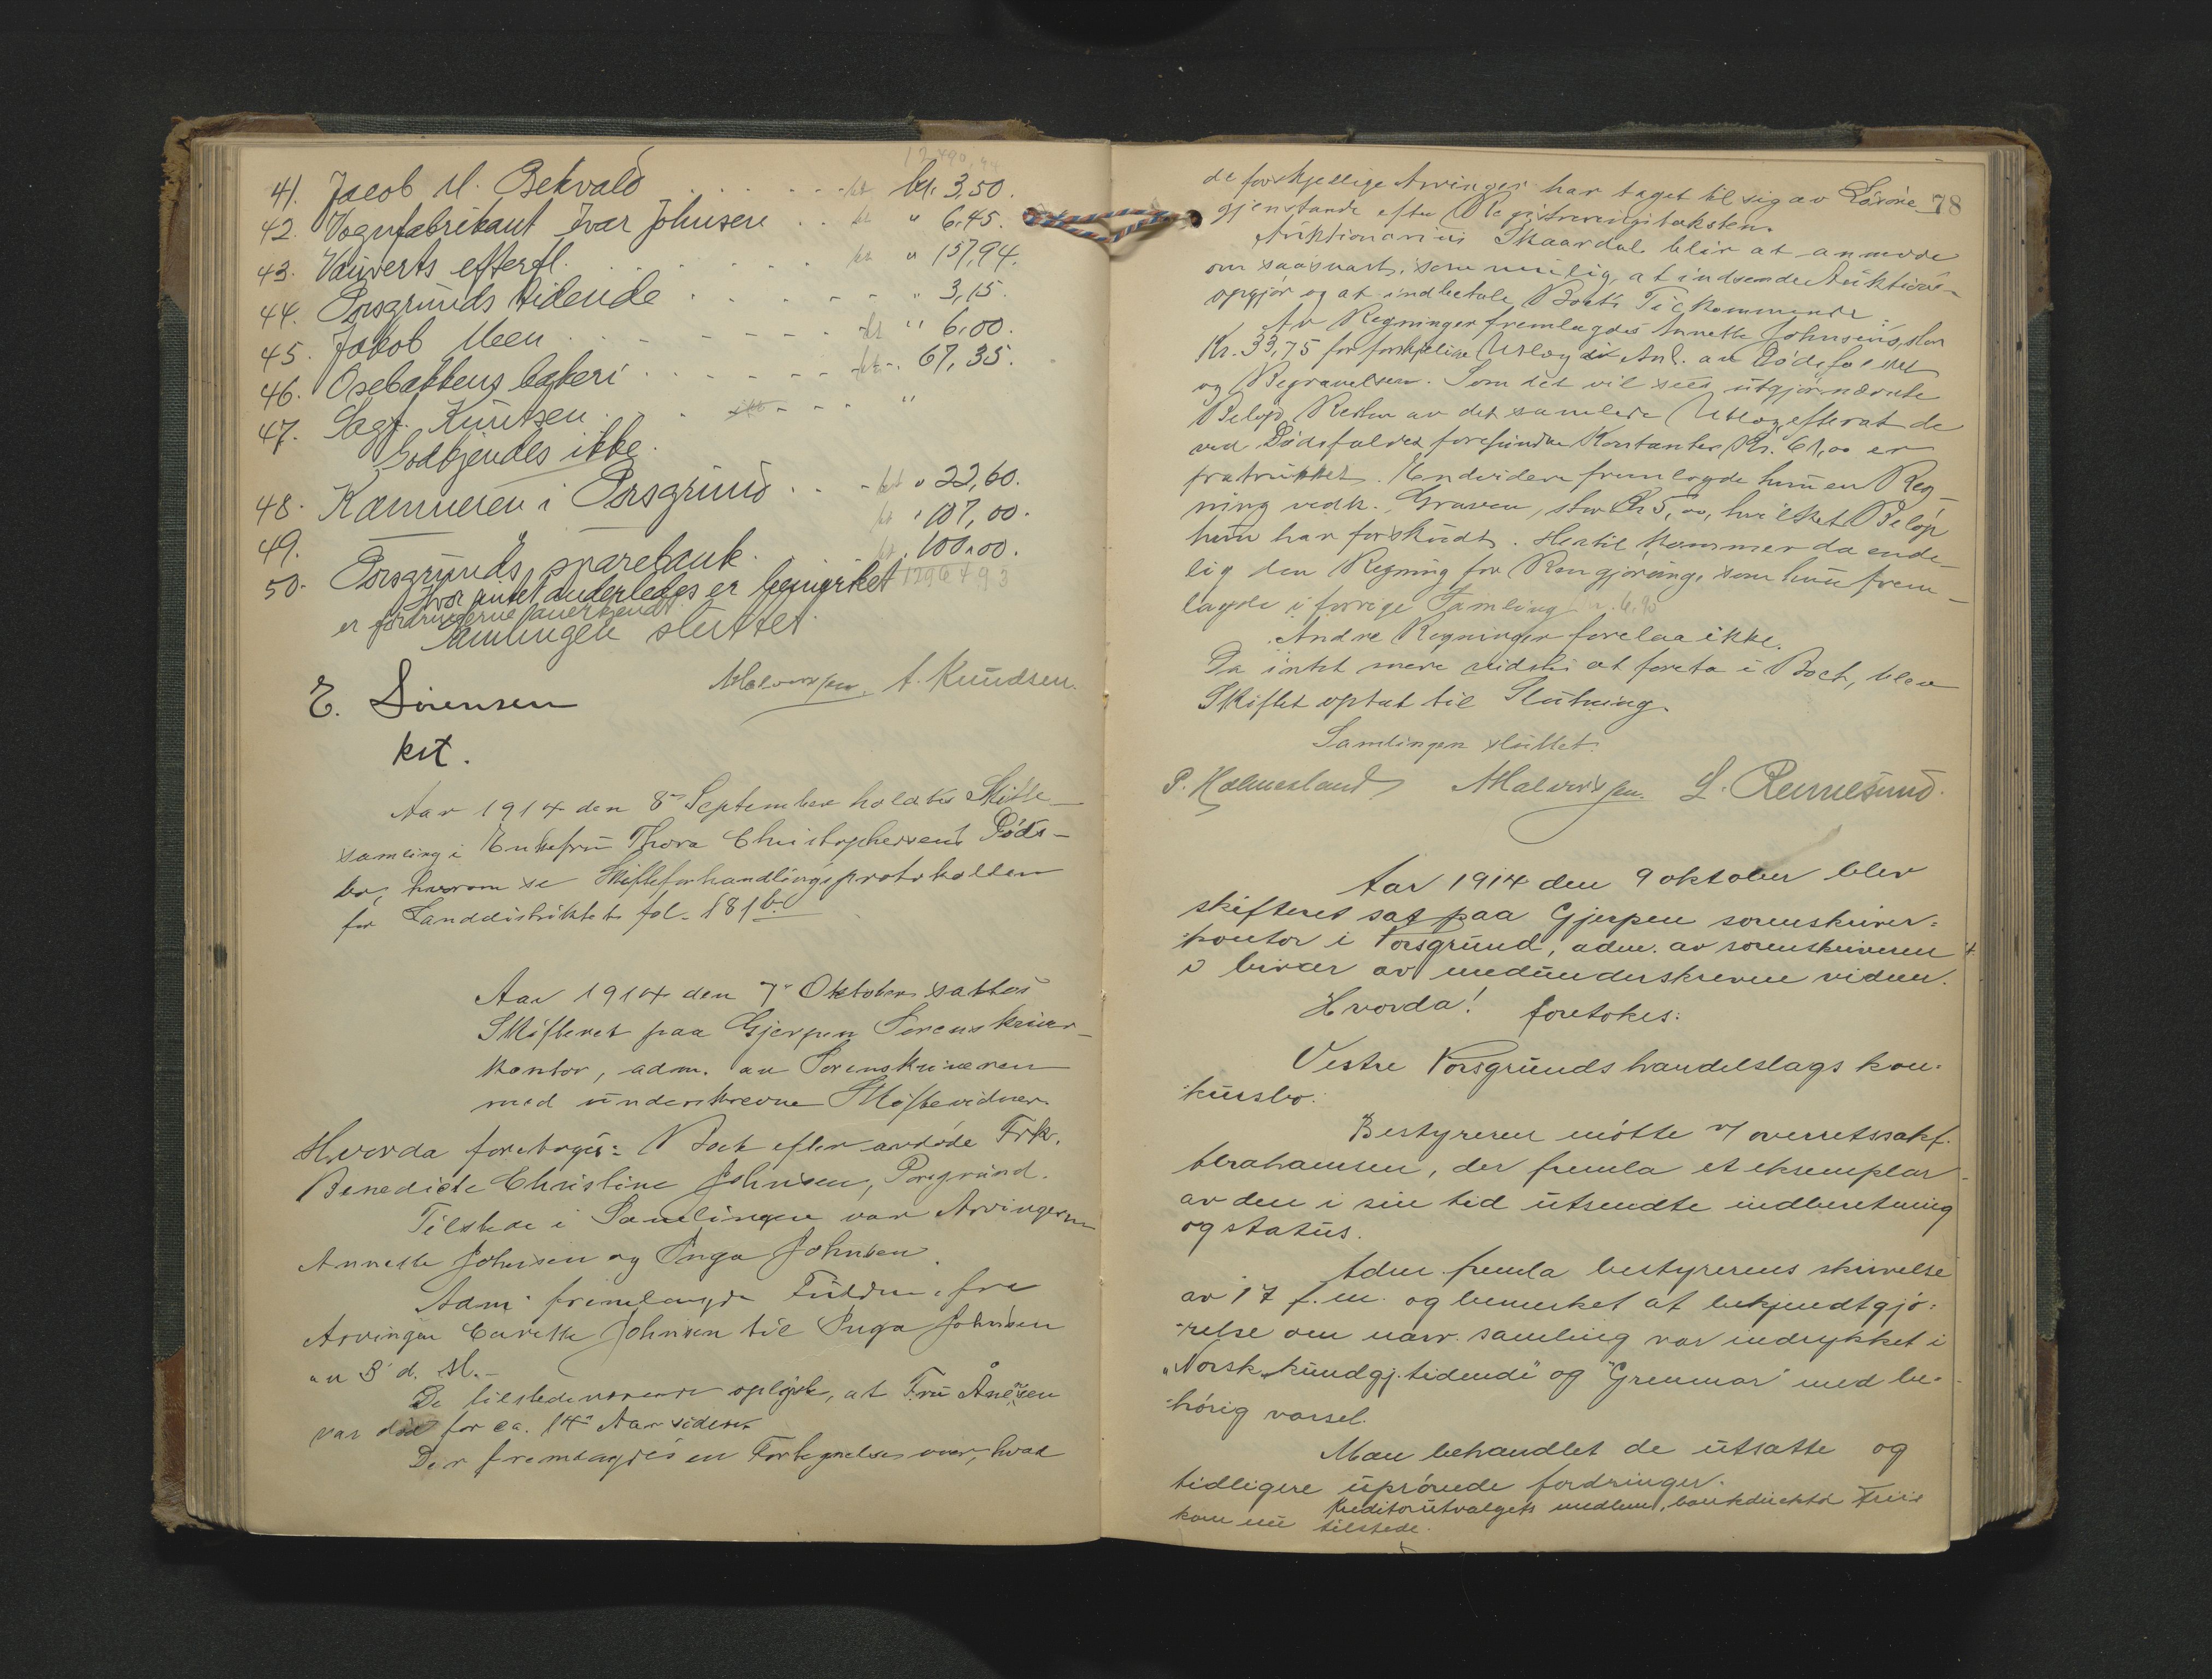 41. Jacob M. Bekvald kr. 3,50.
42. Vognfabrikant Ivar Johnsen " 6,45.
43. Vauverts efterfl. " 157,94.
44. Porsgrunds tidende " 3,15.
45. Jakob Meen " 6,00.
46. Osebakkens bakeri 67,35.
47. Sagf. Knutsen "
Godkjendes ikke.
48. Kæmneren i Porsgrund " 22,60.
49. " 107,00.
50. Porsgrunds sparebank 100,00.
Hvor intet anderledes er bemerket
er fordringerne anerkjendt.
Samlingen sluttet.
A. Knudsen.
E. Sørensen
kst.
Aar 1914 den 8de September holdtes Skifte-
samling i Enkefru Thora Christophersens Døds-
bo, hvorom se Skifteforhandlingsprotokollen
for Landdistriktet fol. 181 b.
Aar 1914 den 7de Oktober sattes
Skifteret paa Gjerpen Sorenskriver-
kontor, adm. av Sorenskriveren
med underskrevne Skiftevidner.
Hvorda foretoges: Boet efter avdøde Frk.
Benedicte Christine Johnsen, Porsgrund.
Tilstede i Samlingen var Arvingerne
Annette Johnsen og Inga Johnsen.
Adm. fremlagde Fuldm. fra
Arvingen Johnsen til Inga Johnsen
av 3 d. M.
De tilstedeværende oplyste, at Fru
var død for ca. 14 Aar siden.
Der fremlagdes en Fortegnelse over, hvad
78
de forskjellige Arvinger har taget til sig av Løsøre
gjenstande efter Registreringstaksten.
Auktionarius Skaardal blir at anmode
om saasnart som mulig, at indsende Auktions-
opgjør og at indbetale Boets Tilkommende.
Av Regninger fremlagdes Annette Johnsens, stor
Kr. 33,75 for forskjellige Utlæg i Anl. av Dødsfaldet
og Begravelsen. Som det vil sees, utgjør nævnte
Beløp Resten av det samlede Utlæg, efterat de
ved Dødsfaldet forefundne Kontanter Kr. 61,00 er
fratrukket. Endvidere fremlagde hun en Reg-
ning vedk. Graven, stor Kr 5,00, hvilket Beløp
hun har forskudt. Hertil kommer da ende-
lig den Regning for Rengjøring, som hun frem-
lagde i forrige Samling
Andre Regninger forelaa ikke.
Da intet mere vidstes at foreta i Boet, blev
Skiftet optat til Slutning.
Samlingen sluttet.
P. Holmesland L. Rennesund.
Aar 1914 den 9 oktober blev
skifteret sat paa Gjerpen sorenskriver-
kontor i Porsgrund, adm. av sorenskriveren
i nærvær av medunderskrevne vidner.
Hvorda! foretokes:
Vestre Porsgrunds handelslags kon-
kursbo.
Bestyreren møtte v/ overretssakf.
Abrahamsen, der fremla et eksemplar
av den i sin tid utsendte indberetning
og status.
Adm. fremla bestyrerens skrivelse
av 17 f. m. og bemerket at bekjendtgjø-
relse om nærv. samling var indrykket i
"Norsk kundgj. tidende" og "Grenmar" med be-
hørig varsel.
Man behandlet de utsatte og
tidligere uprøvede fordringer.
Kreditorutvalgets medlem, bankdirektør Friis
kom nu tilstede.